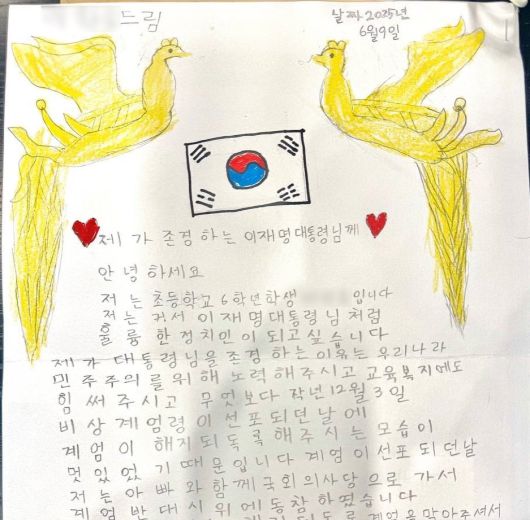 드림
날짜 2025년
6월 9일
제가 존경하는 이재명대통령님께
안녕하세요
저는 초등학교 6학년학생 입니다
저는 커서 이재명대통령님 처럼
훌륭한 정치인이 되고싶습니다
제가 대통령님을 존경하는 이유는 우리나라
민주주의를 위해 노력해주시고 교육복지에도
힘 써주시고 무엇보다 작년 12월 3일
비상계엄령이 선포되던날에
계엄이 해지되도록 해주시는 모습이
멋있었기 때문입니다 계엄이 선포 되던날
저는 아빠와 함께 국회의사당으로 가서
계엄 반대시위에 동참하였습니다
계엄을막아주셔서